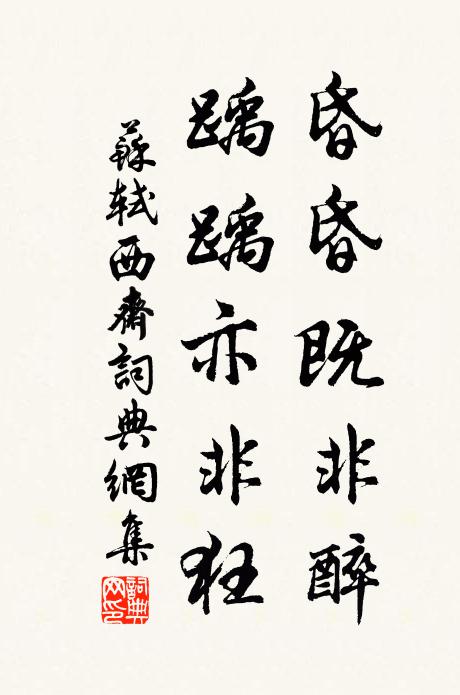 昏昏既非醉
踽踽亦非狂
蘇軾西齋詞典網集
詞典網印